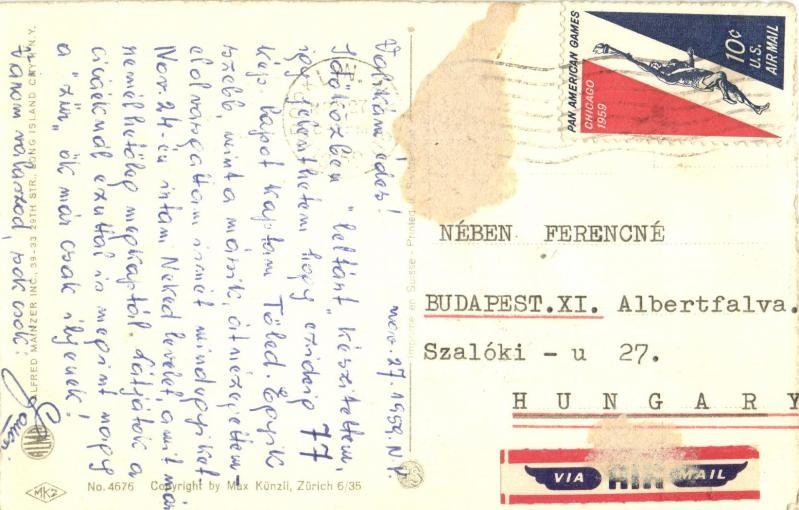 nov. 27. 1959. N.Y.
Valikám, édes!
Időközben "leltárt" készítettem,
így jelenthetem, hogy eddig 77
kép lapot kaptam Tőled. Egyik
szebb, mint a másik, átnézegettem-
elolvasgattam ismét mindegyiket.
Nov. 24-én írtam Neked levelet, amit már
remélhetőleg megkaptál. Látjátok a
cicáknál ezúttal is megint nagy
a "zűr", ők már csak ilyenek!
Várom válaszod, sok csók:
PAN AMERICAN GAMES
CHICAGO
1959
10¢
U.S.
AIR MAIL
NÉBEN FERENCNÉ
BUDAPEST.XI. Albertfalva.
Szalóki - u 27.
HUNGARY
VIA AIR MAIL
ALFRED MAINZER INC., 39-33 29TH STR., LONG ISLAND CITY, N.Y.
ALMA
MKZ
No. 4676 Copyright by Max Künzli, Zürich 6/35
Imprimé en Suisse - Printed